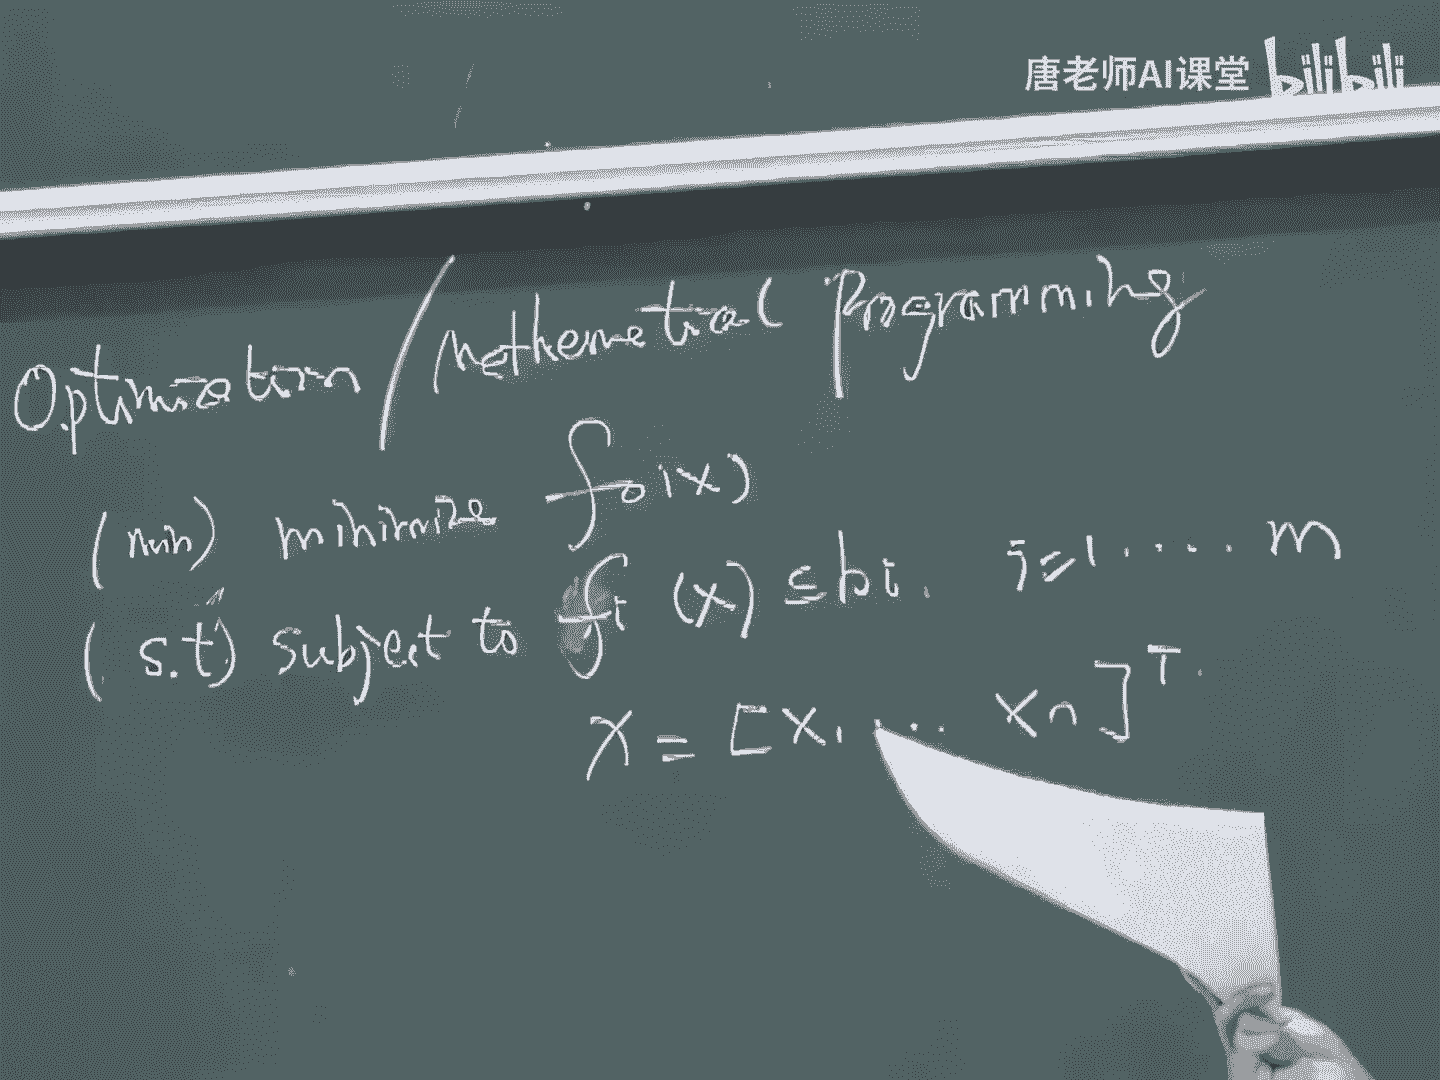 唐老师AI课堂 bilibili
Optimization / Mathematical Programming
(min) minimize f₀(x)
(s.t) subject to fᵢ(x) ≤ bᵢ. i=1....m
x = [x₁ ... xₙ]ᵀ.